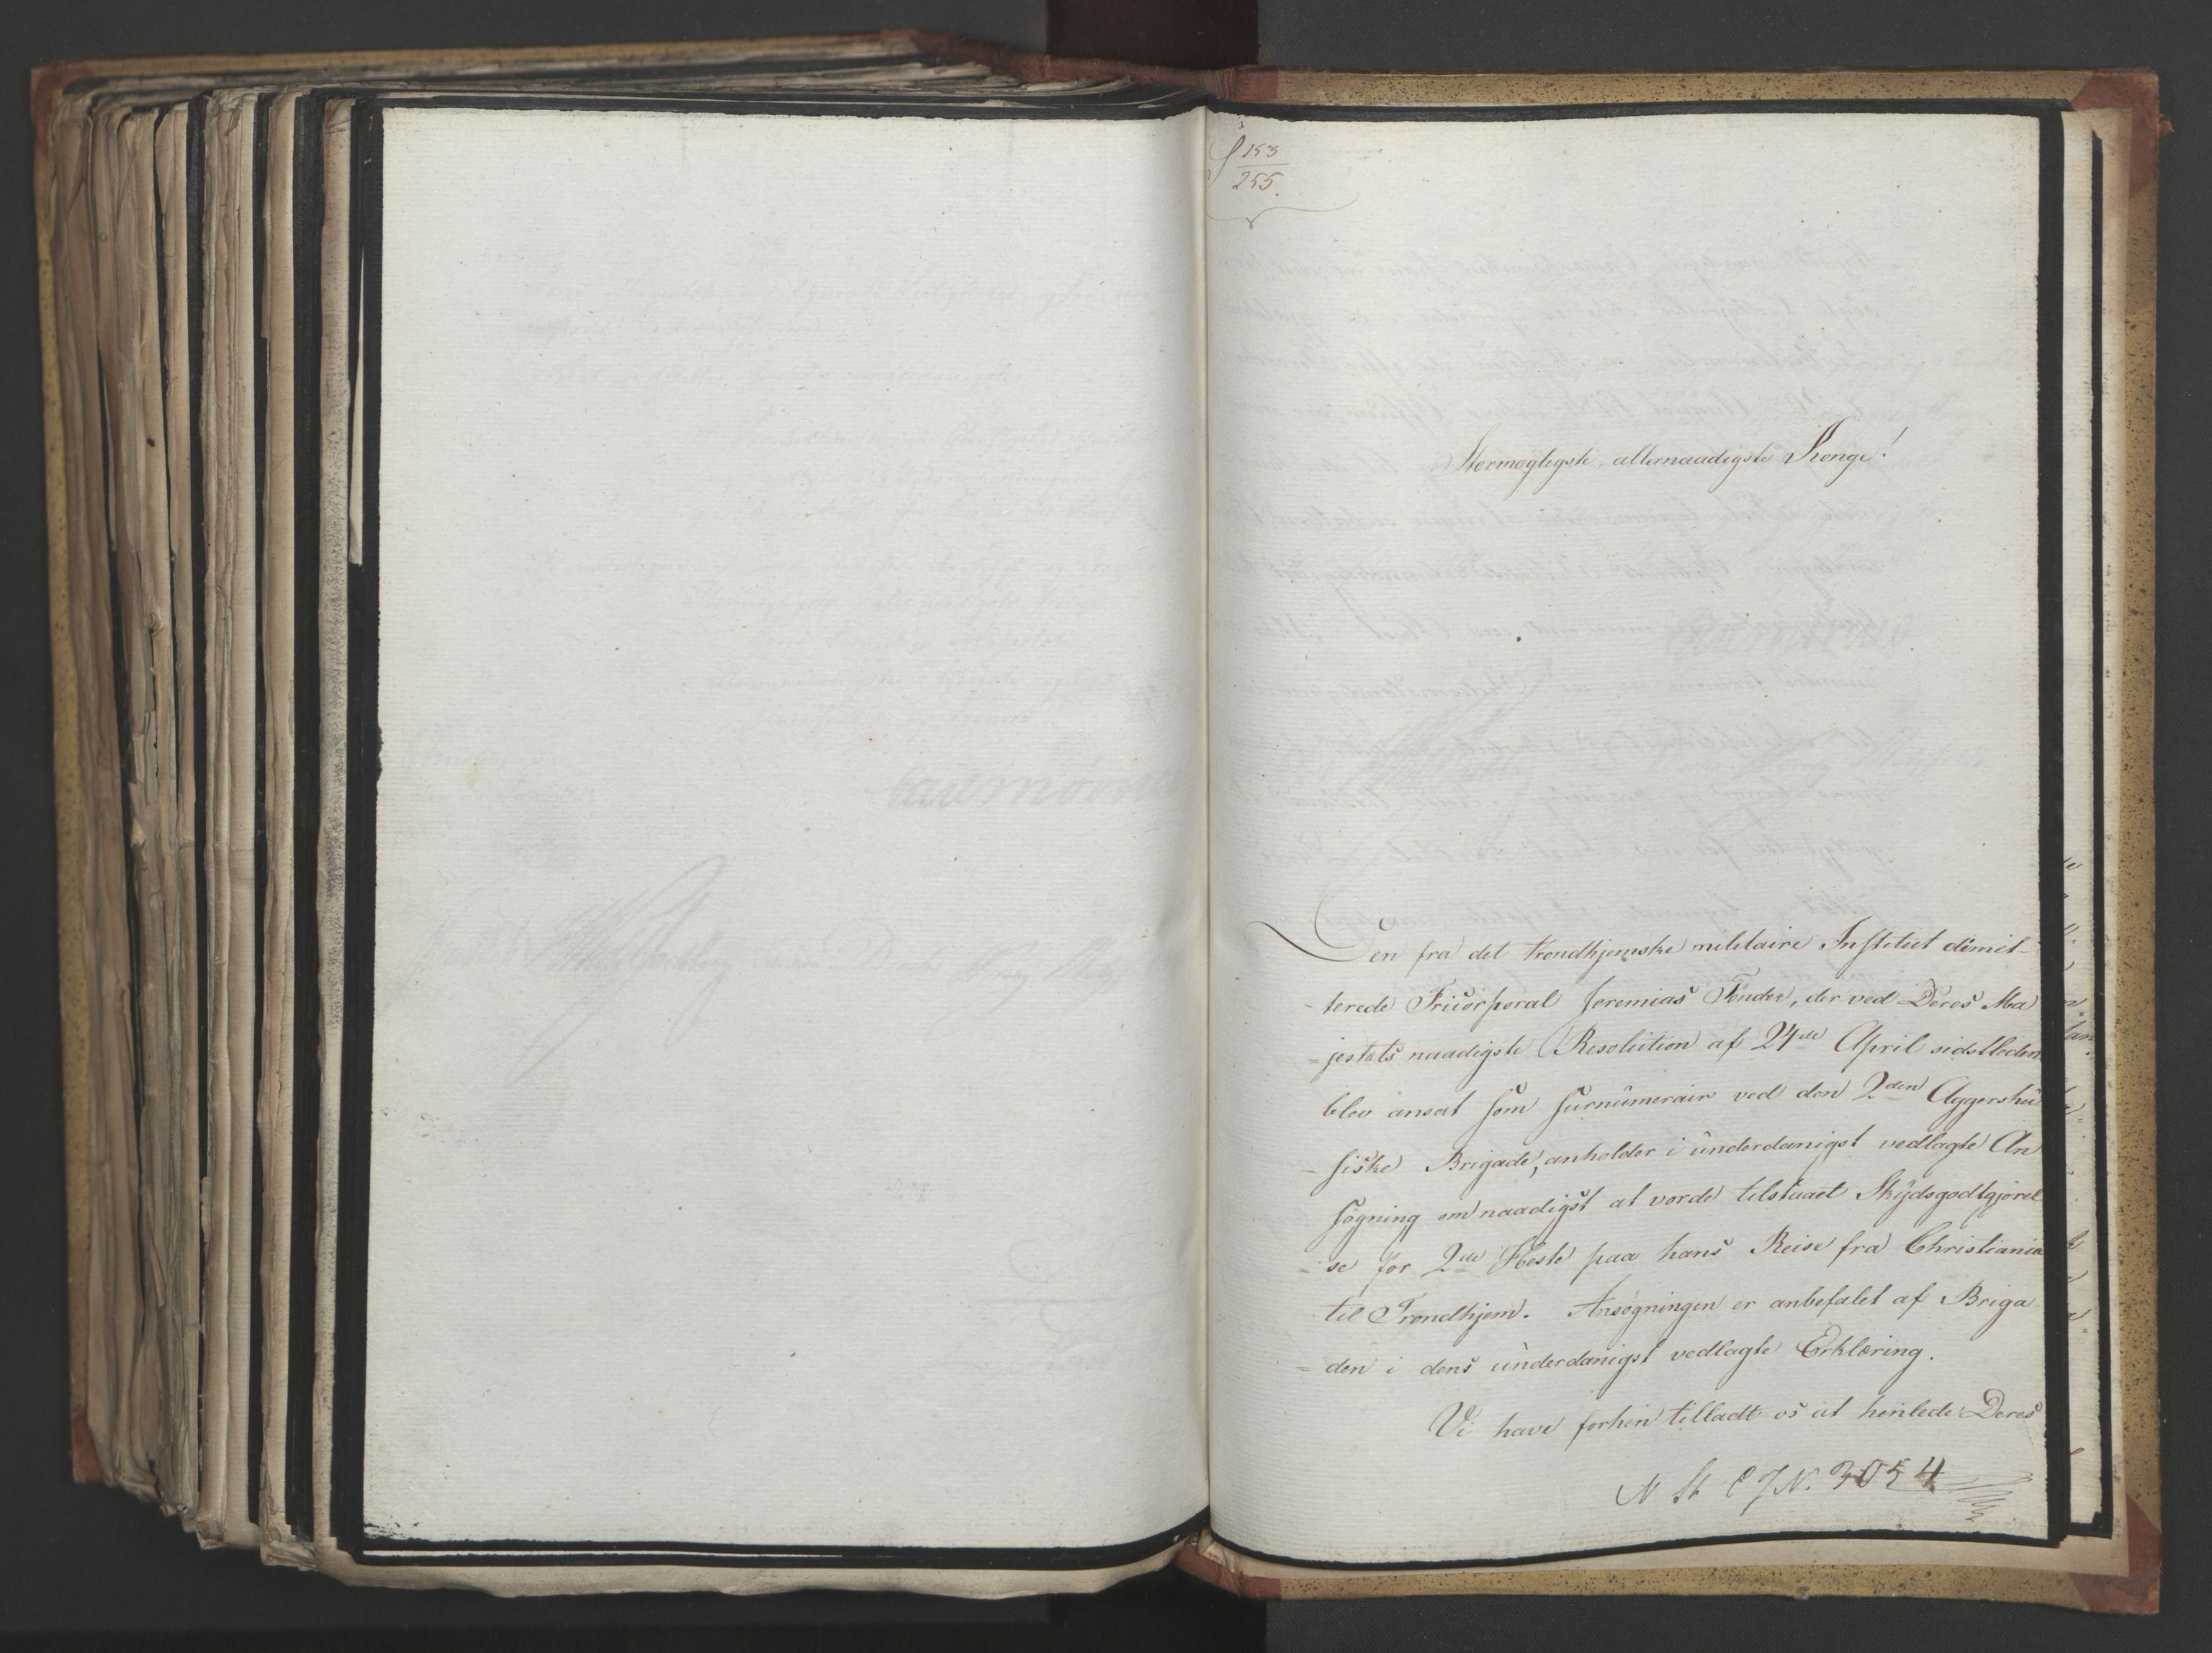 153
255.
Stormægtigste, allernaadigste Konge!
Den fra det trondhjemske militaire Institut dimit-
-terede Fricorporal Jeremias Tønder, der ved Deres Ma
-jestæts naadigste Resolution af 24de April sidstleden
blev ansat som surnumerair ved den 2den Aggershu
-siske Brigade, anholder i underdanigst vedlagte An
søgning om naadigst at vorde tilstaaet Skydsgodtgjørel
-se for 2de Heste paa hans Reise fra Christiania
til Trondhjem. Ansøgningen er anbefalet af Briga
-den i dens underdanigst vedlagte Erklæring.
Vi have forhen tilladt os at henlede Deres
N St C J N. 3054